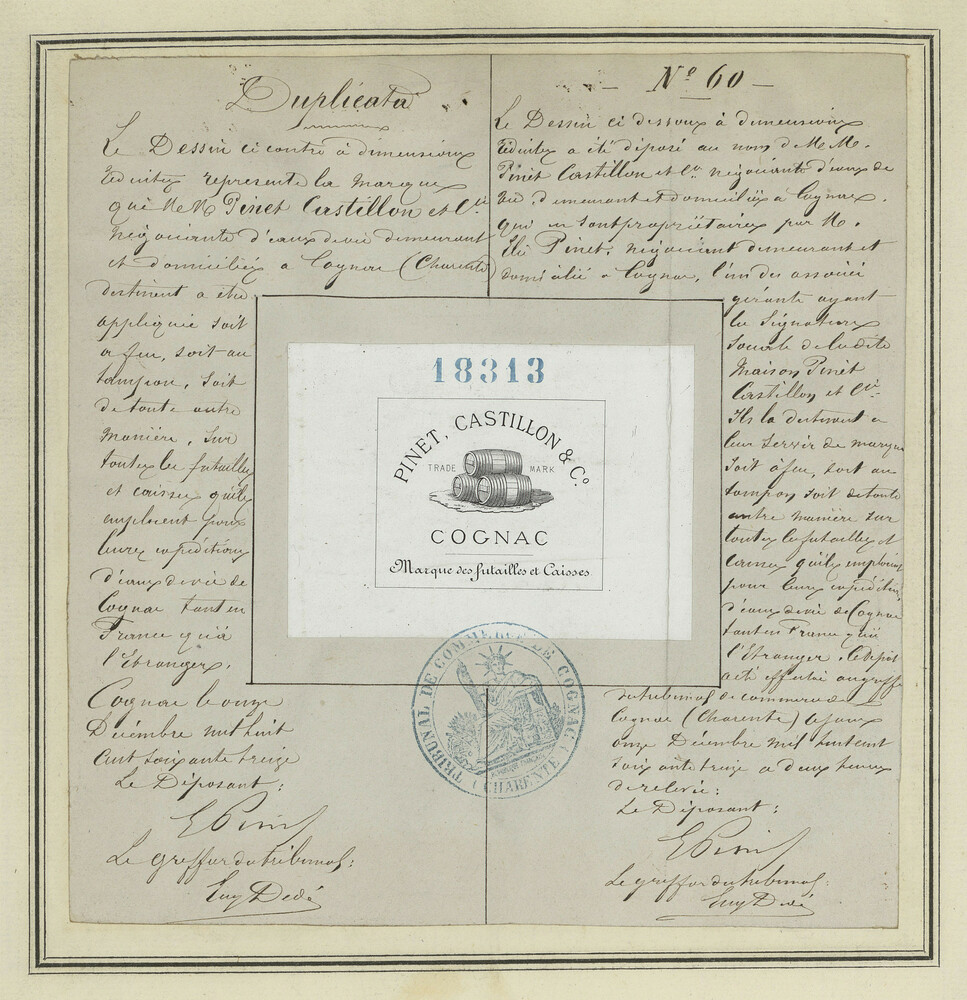 Duplicata
Le Dessin ci contre à dimensions
réduites represente la marque
que MM Pinet Castillon et Cie
négociants d'eaux de vie demeurant
et domiciliés à Cognac (Charente)
destinent a être
appliquée soit
a feu, soit au
tampon, soit
de toute autre
manière, sur
toutes les futailles
et caisses qu'ils
emploient pour
leurs expéditions
d'eaux de vie de
Cognac tant en
France qu'à
l'Etranger.
Cognac le onze
Décembre mil huit
cent soixante treize
Le Déposant:
E Pinet
Le greffier du tribunal:
Eug Dedé
N° 60
Le Dessin ci dessous à dimensions
réduites a été déposé au nom de MM.
Pinet Castillon et Cie négociants d'eaux de
vie, demeurant et domiciliés à Cognac.
qui en sont propriétaires par M.
Elie Pinet, négociant demeurant et
domicilié à Cognac, l'un des associés
gérants ayant
la signature
sociale de la dite
Maison Pinet
Castillon et Cie
Ils la destinent a
leur servir de marque
soit à feu, soit au
tampon soit de toute
autre manière sur
toutes les futailles et
caisses qu'ils emploient
pour leurs expéditions
d'eaux de vie de Cognac
tant en France qu'à
l'Etranger. Le dépôt
a été effectué au greffe
du tribunal de commerce de
Cognac (Charente) ce jour
onze Décembre mil huit cent
soixante treize a deux heures
de relevée:
Le Déposant:
E Pinet
Le greffier du tribunal:
Eug Dedé
18313
PINET, CASTILLON & Co
TRADE MARK
COGNAC
Marque des futailles et Caisses
TRIBUNAL DE COMMERCE DE COGNAC
(CHARENTE)